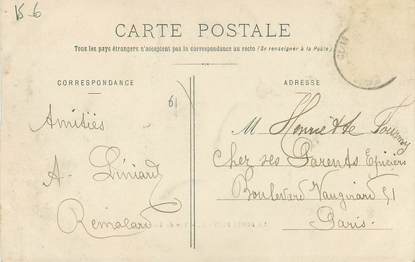 15-6
CARTE POSTALE
Tous les pays étrangers n'acceptent pas la correspondance au recto (Se renseigner à la Poste)
CORRESPONDANCE
ADRESSE
61
Amitiés
A. Liniard
Remalard
M Henriette
Chez ses Parents Epiciers
Boulevard Vaugirard 51
Paris.